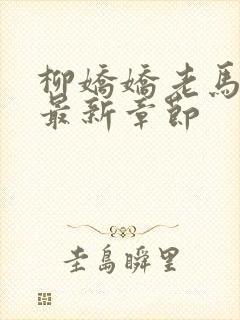 柳嬌嬌老馬
最新章節
圭島瞬里